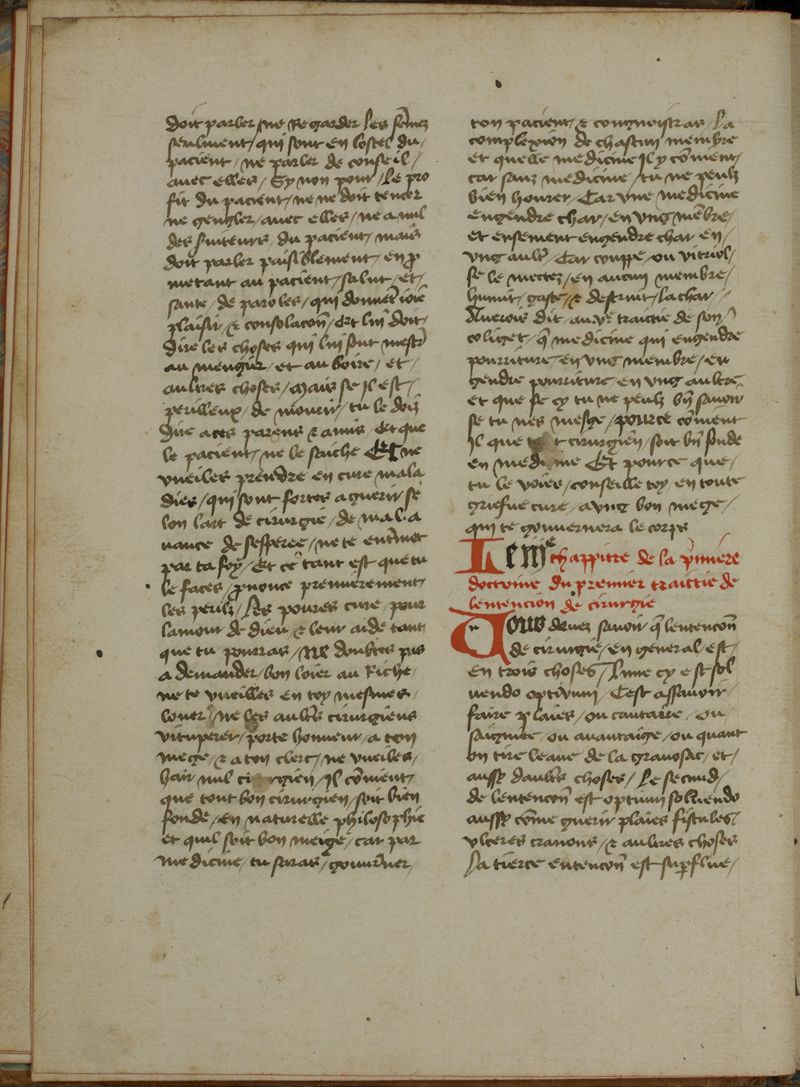 doit parler / ne Regarder les fēmes
seulment / qui sont en lostel du /
pacient / ne parler de conseil /
avec elles / Sy non pour / le pro
fit du pacient / ne ne doit tencer
ne gengler / avec elles / ne a nul
des serviteurs / du pacient / mais
doit parler paisiblement / en p̄
metant au pacient / salut / et /
sante / de paroles / qui donnēt ioie
plaisir / & consolacōn / Et lui doit /
Dire les choses qui lui sont mestr̄
au mengier / et au boire / et /
aultres choses / Mais se il est /
perilleux / de mourir / tu le doiz
dire a ces parens & amis / Et que
le pacient / ne le saiche / Et ne
vueilles prendre en cure mala
dies / qui sont fortes a guerir / se
lon lart de cirurgie / de mala
uance desesperee / ne te entremet
par ta foy / Et ce tant est que tu
le faces / pnonce premierement /
les perilz / Les poures cure pour
lamour de dieu / & leur aide tant
que tu pourras / Ne doubtes pas
a demander / bon loier au Riche /
ne te vueilles en toy mesmes /
louer / ne les aultr̄s cirurgiens
vituperer / porte honneur / a ton
mege / & a ton clerc / ne vueilles /
hair nul ci rgien / Il cōuient /
que tout bon cirurgien / soit bien
fonde / en naturelle philosophie
et quil soit bon meige / car par
medicine / tu saras / gouuerner /
ton pacient / & congnoistras / La
complexion de chascun membre
et quelle medicine il y cōuient /
car sanz medicine / tu ne peulz
bien honrer / Car vne medicine
engendre char / en vng mēbre /
et ensement engendre char en /
vng aultr̄ / Car couppe / ou vitriol /
se le mectez / en aucun membre /
humit / gaste / & destruit / la char /
Auerois dit / au vᵉ traictie de son /
coliget / q̄ medicine qui engendre
pourriture / en vng membre / en
gendre pourriture / en vng aultre
et que se cy tu ne peulz bn̄ sauoir
se tu nes mesge / pource cōuient
Il que t cirurgien / soit bn̄ fonde
en medi ine Et pource que /
tu le voies / conseille toy en toute
griefue cure / a vng bon mege /
qui te gouuernera le corps
Le iijᵉ chappitre de la p̄miere
doctrine du premier traictie de
lentencion de cirurgie
Vous deuez sauoir q̄ lentencōn
de cirurgie / en general est /
En trois choses / Lune cy est sol
uendo optinum / Cest assauoir /
faire plaies / ou cautaire / ou
saignier / ou auantaige / ou quant
on tire leaue de la grauosac / et /
aussy daultr̄s choses / Le second /
de lentencōn est optinum soluendo
aussy cōme guerir plaies fistules /
vlceres crauons / & aultres choses
La tierce entencōn est superflue /